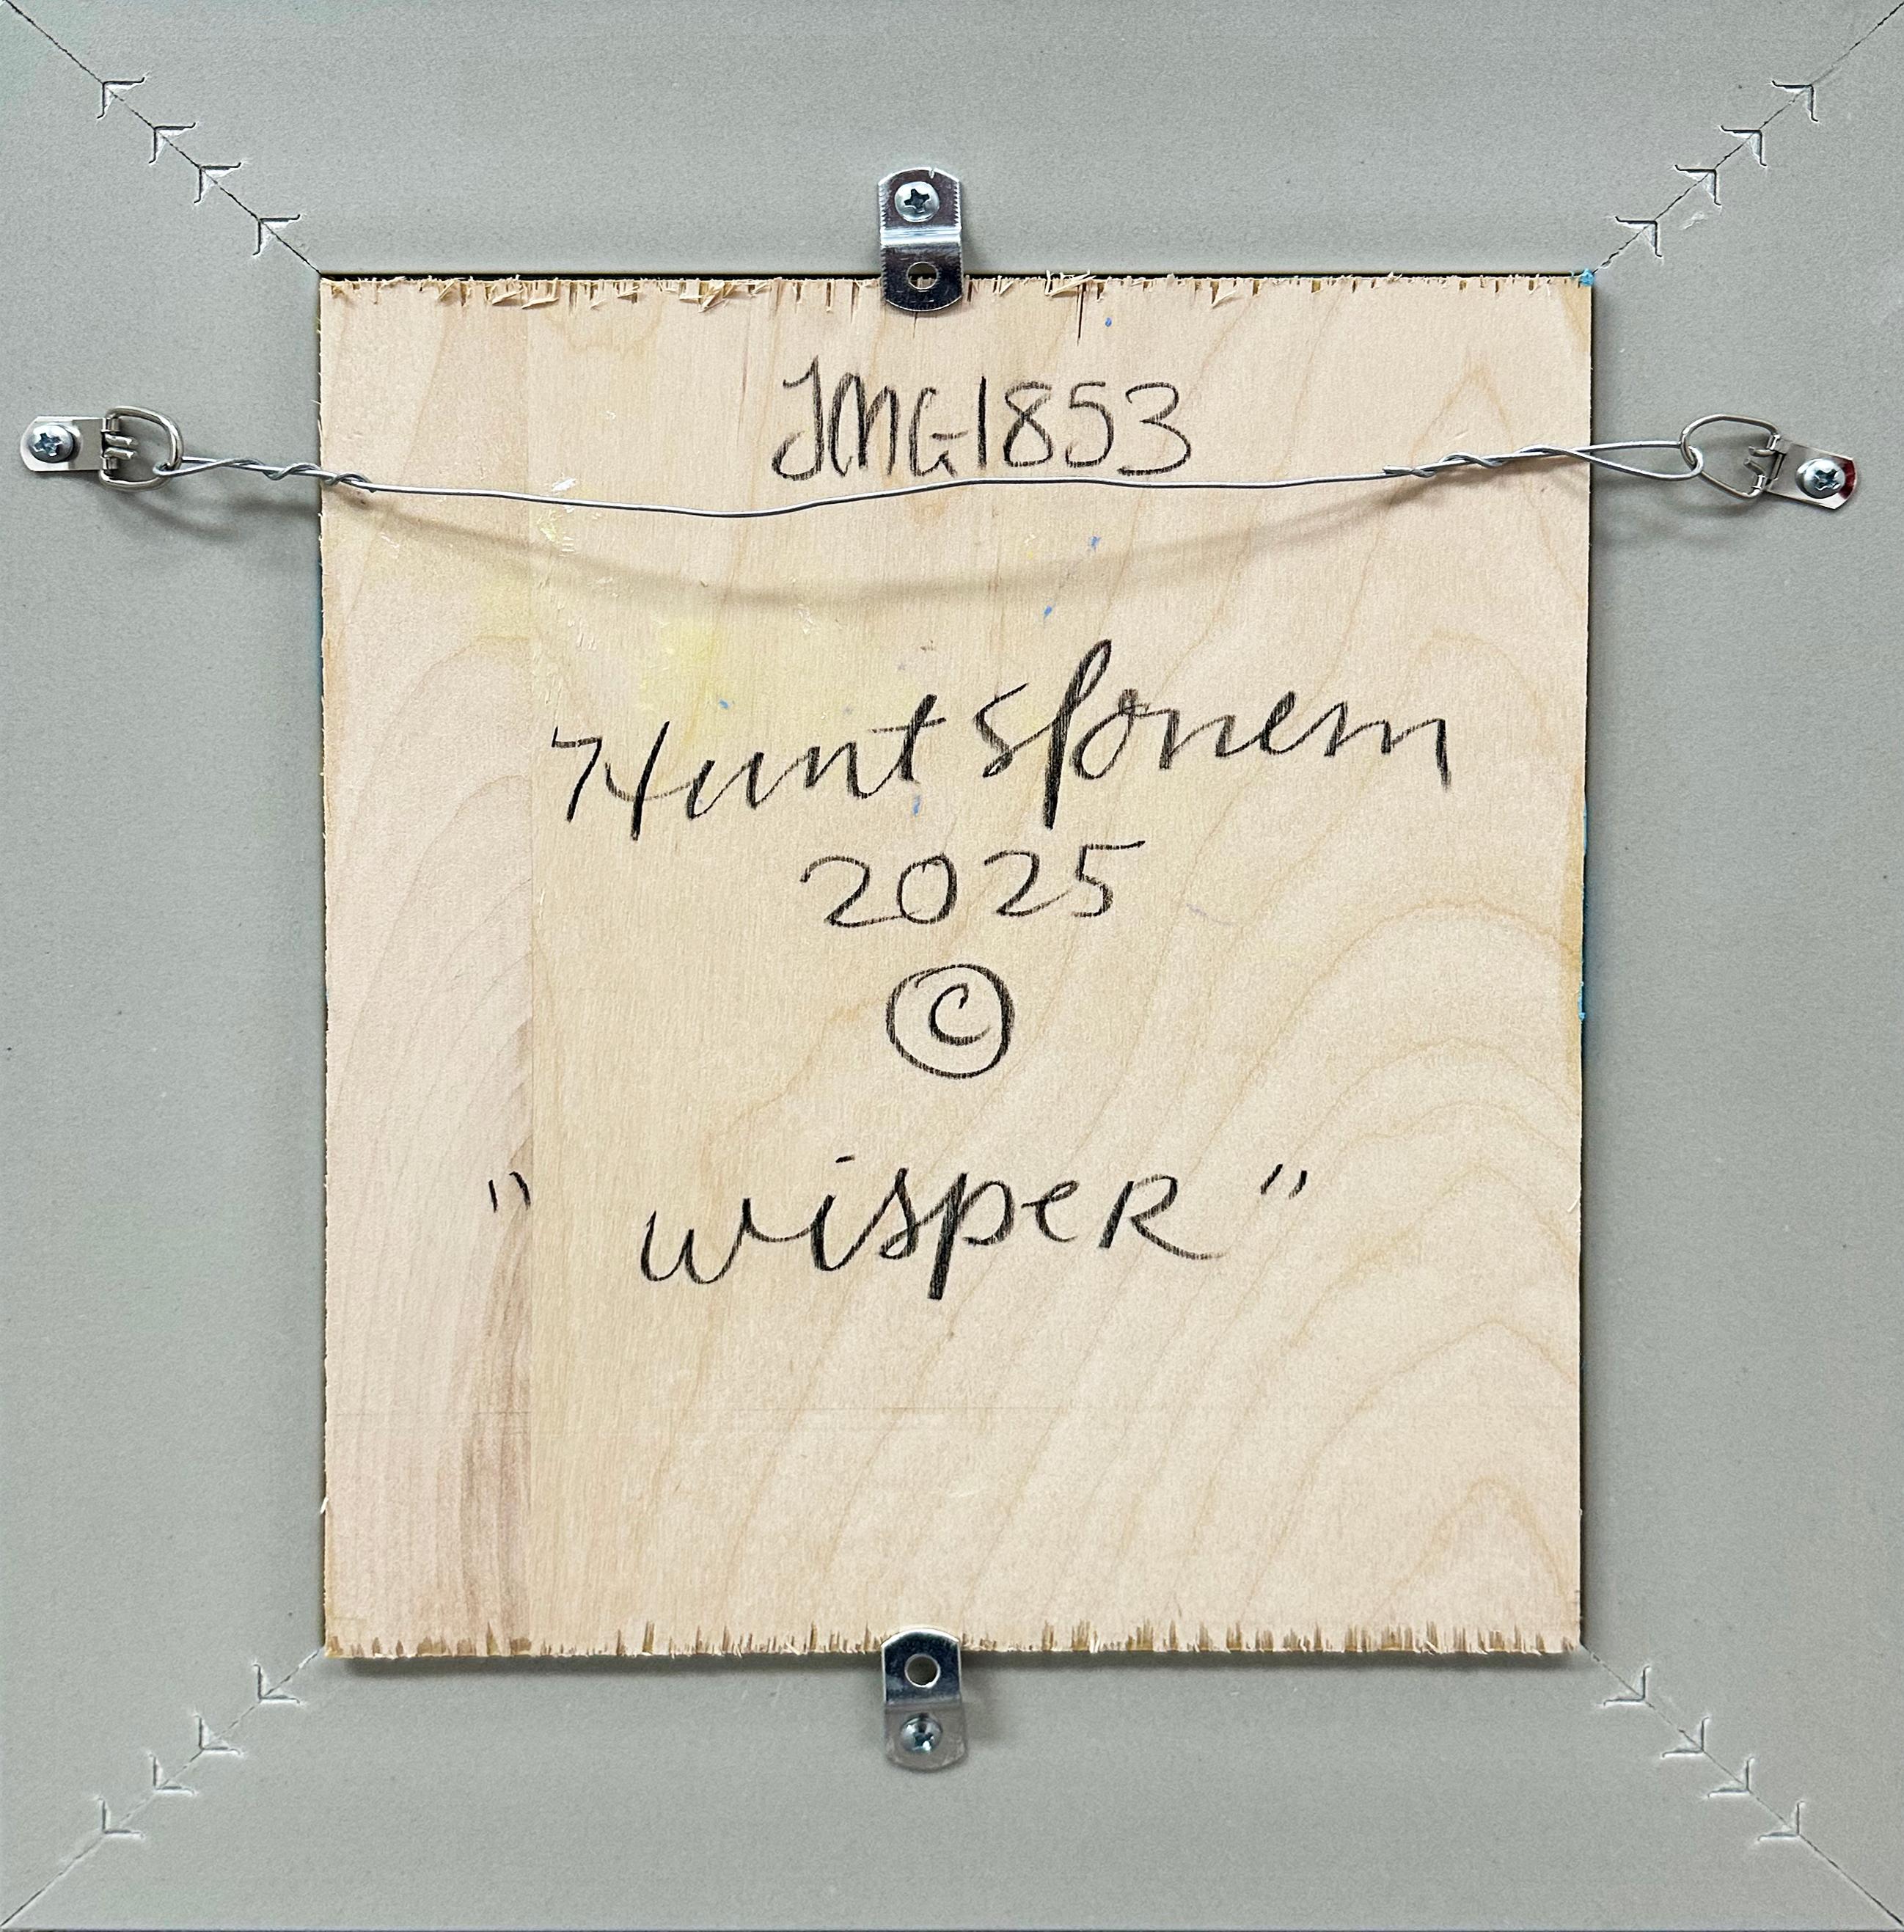 JMG1853
Hunt Slonem
2025
©
" wispeR "